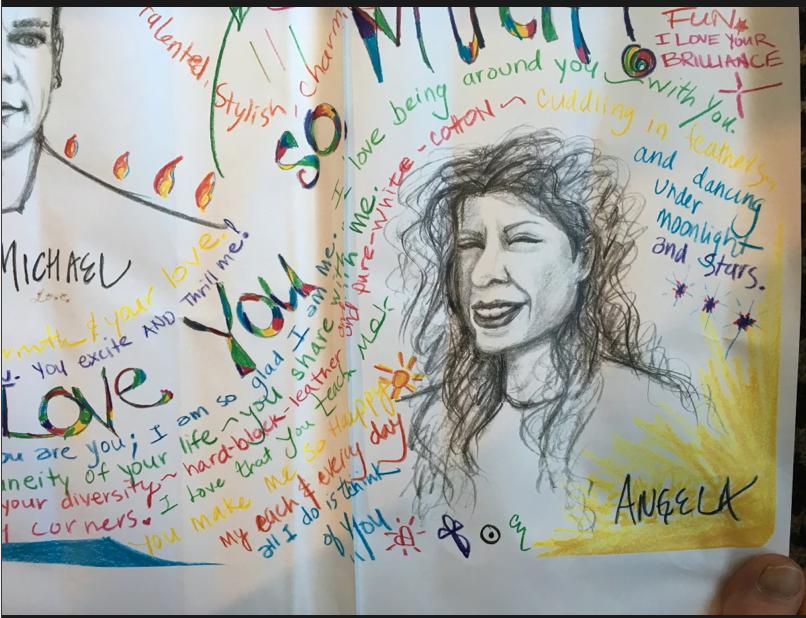 Talented, Stylish, Charm
FUN.
I LOVE YOUR
BRILLIANCE
SO
I love being around you ~ with you.
and pure-white-cotton ~ cuddling in feathers,
and dancing
under
moonlight
and stars.
MICHAEL
Love
& your love.
You excite AND Thrill me!
Love You
you are you; I am so glad I am me.
of your life ~ you share with me.
your diversity ~ hard-block-leather
corners. I love that you teach me!
you make me so Happy
my each & every day
all I do is think
of you
ANGELA